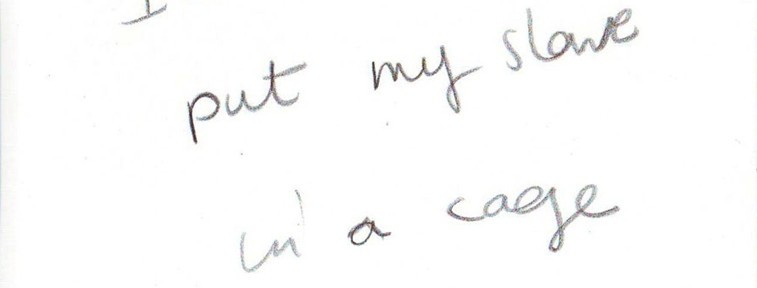 I
put my slave
in a cage